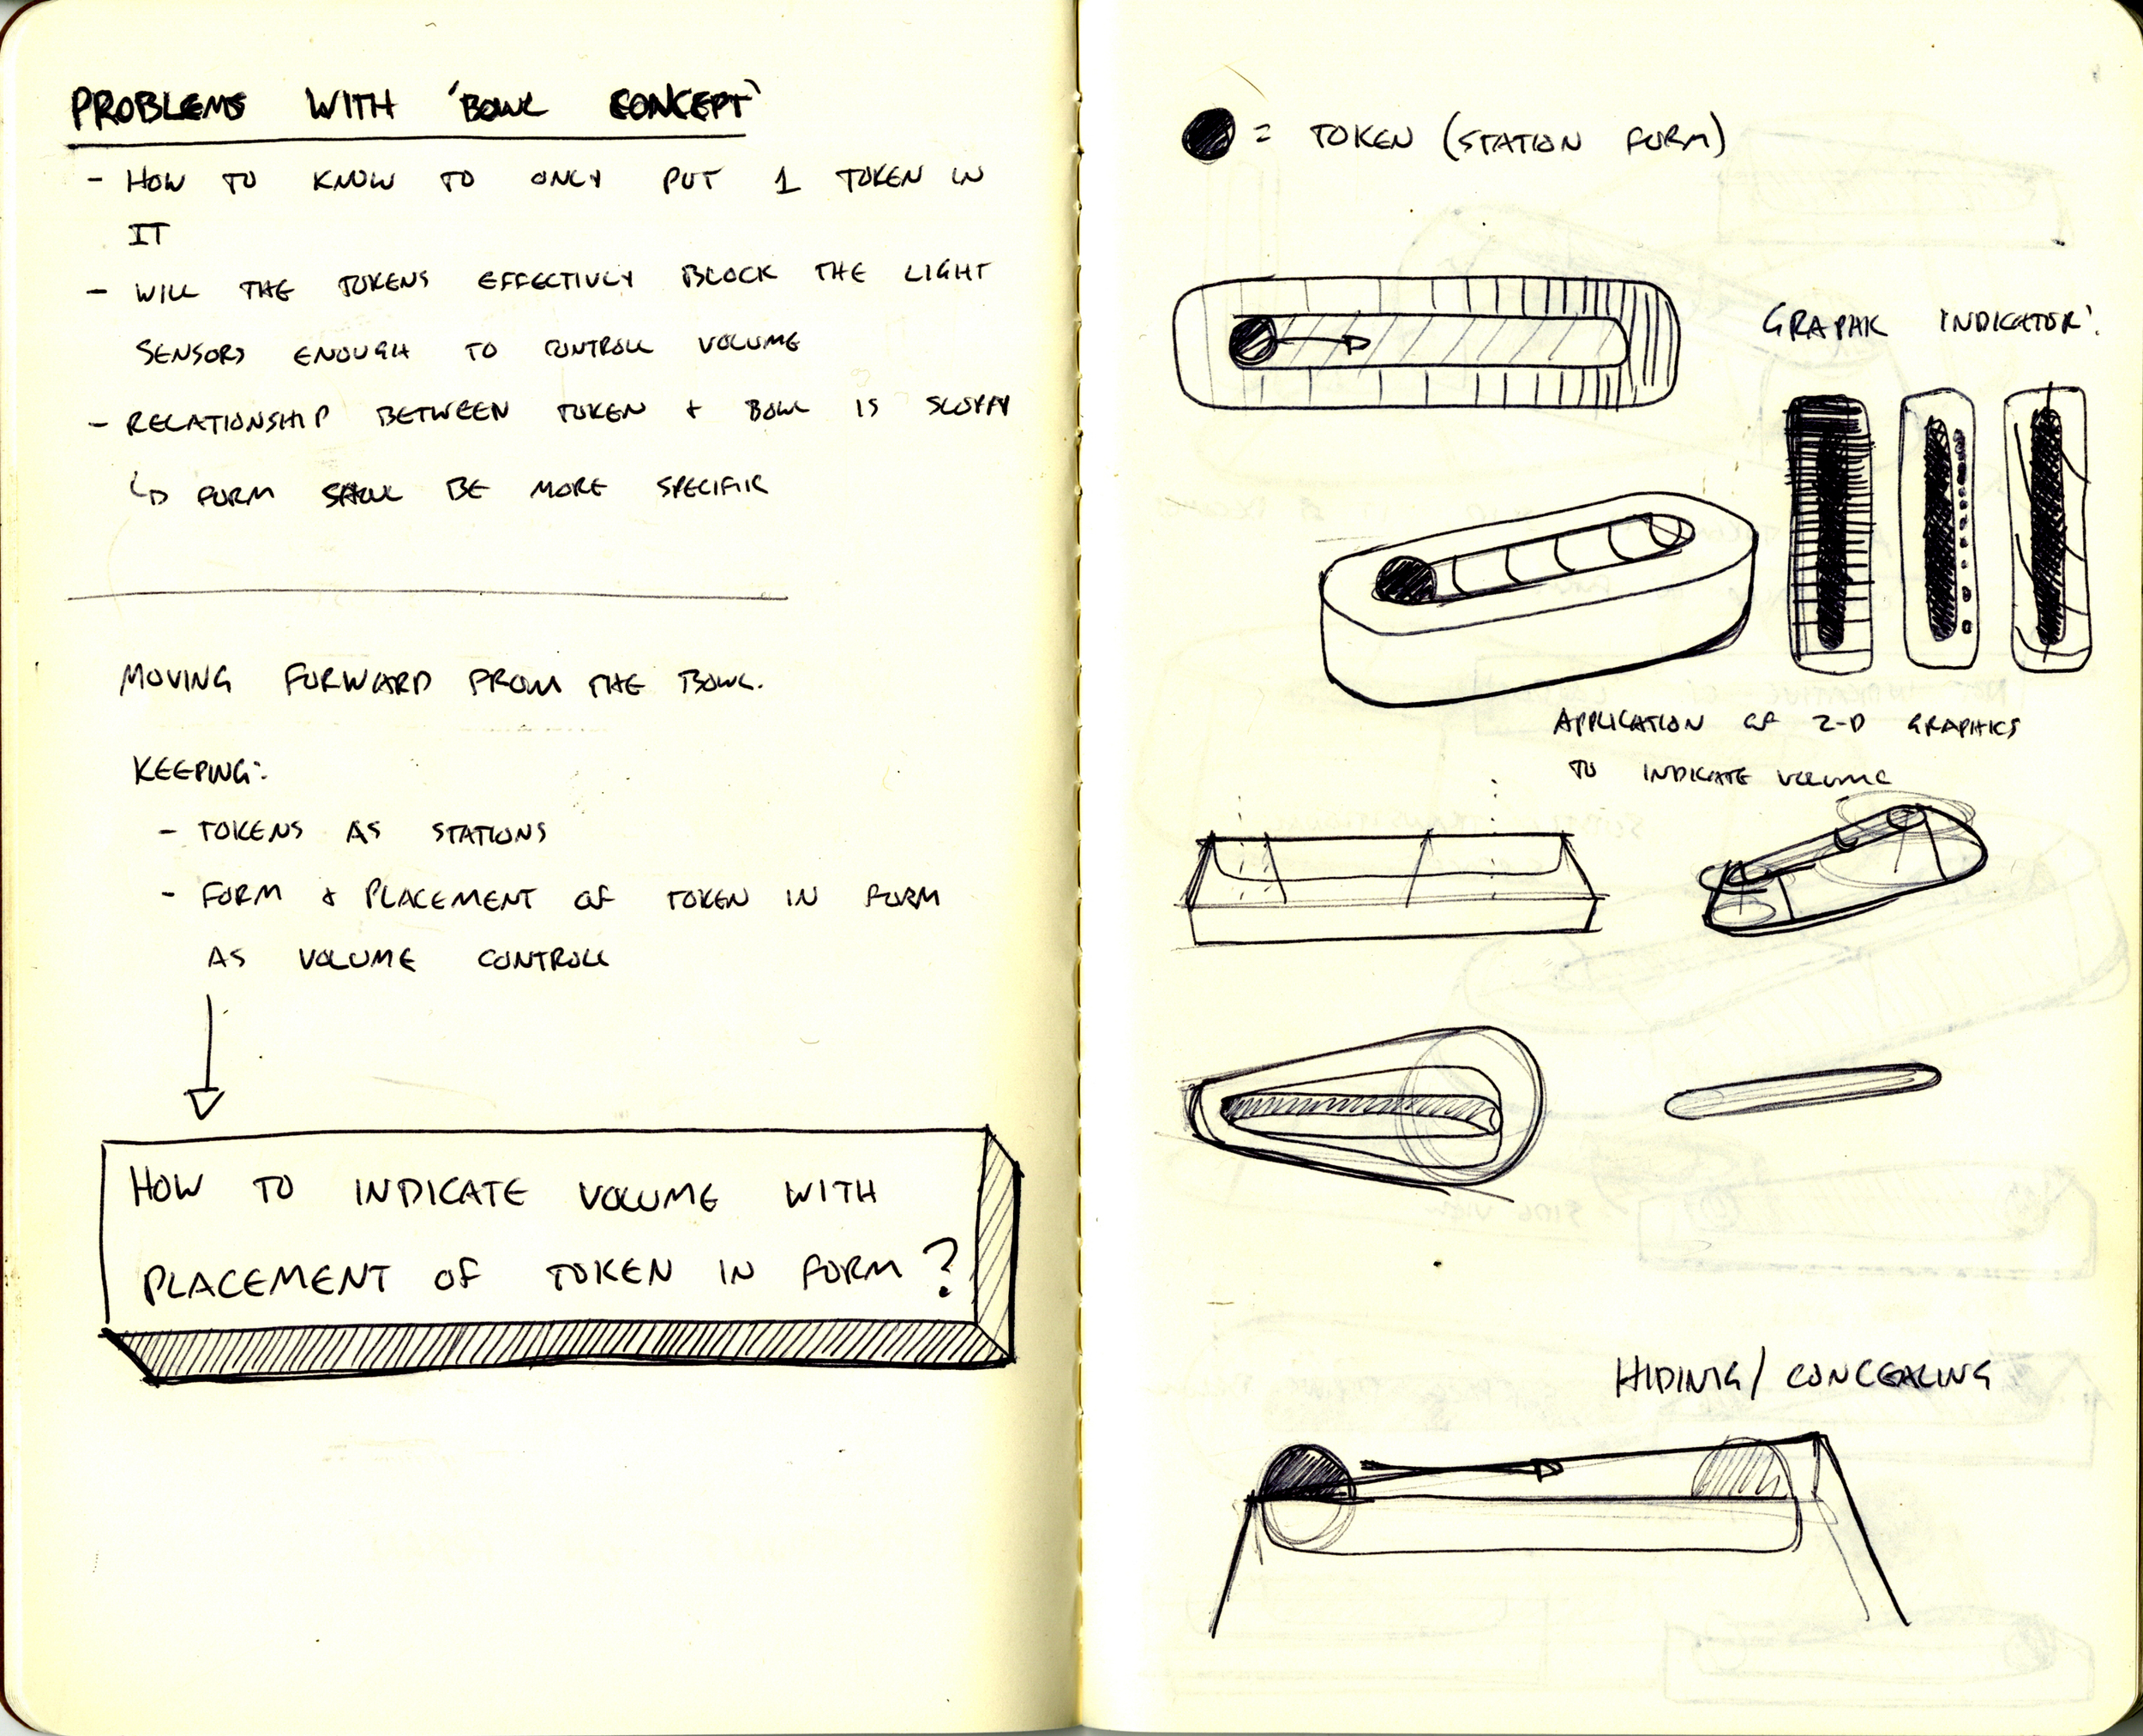 PROBLEMS WITH 'BOWL CONCEPT'
- HOW TO KNOW TO ONLY PUT 1 TOKEN IN
IT
- WILL THE TOKENS EFFECTIVLY BLOCK THE LIGHT
SENSORS ENOUGH TO CONTROLL VOLUME
- RELATIONSHIP BETWEEN TOKEN & BOWL IS SLOPPY
↳ FORM SHOUL BE MORE SPECIFIC
MOVING FORWARD FROM THE BOWL.
KEEPING:
- TOKENS AS STATIONS
- FORM & PLACEMENT OF TOKEN IN FORM
AS VOLUME CONTROLL
HOW TO INDICATE VOLUME WITH
PLACEMENT OF TOKEN IN FORM?
= TOKEN (STATION FORM)
GRAPHIC INDICATOR:
APPLICATION OF 2-D GRAPHICS
TO INDICATE VOLUME
HIDING / CONCEALING